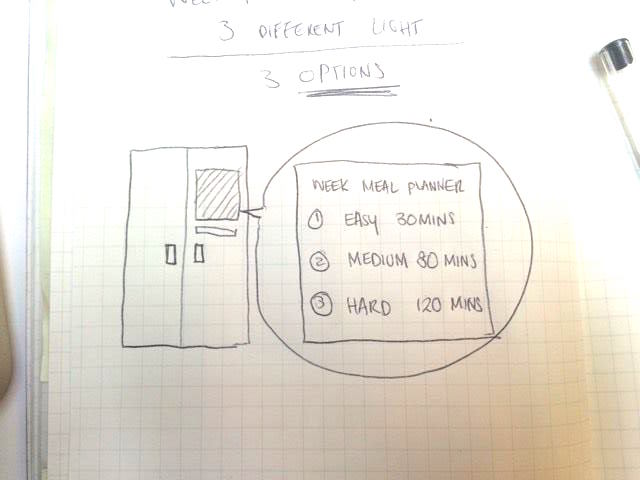 3 DIFFERENT LIGHT
3 OPTIONS
WEEK MEAL PLANNER
① EASY 30MINS
② MEDIUM 80 MINS
③ HARD 120 MINS